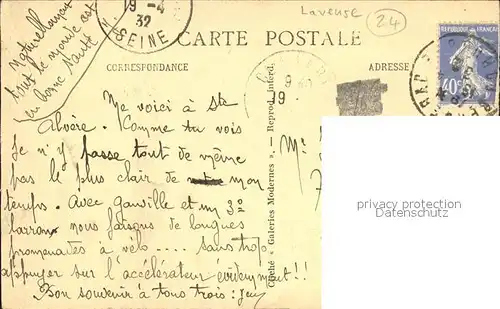 19-4
32
SEINE
Laveuse
24
CARTE POSTALE
Naturellement
tout le monde est
en bonne santé
CORRESPONDANCE
ADRESSE
REPUBLIQUE FRANÇAISE
40c
9
19.
Me voici à Ste
Alvère. Comme tu vois
je n'y passe tout de même
pas le plus clair de mon
temps. Avec Ganville et un 3e
larron nous faisons de longues
promenades à vélo .... sans trop
appuyer sur l'accélérateur évidemment!!
Bon souvenir à tous trois: Jean
Cliché « Galeries Modernes ». — Reprod. Interd.
Mr
privacy protection
Datenschutz